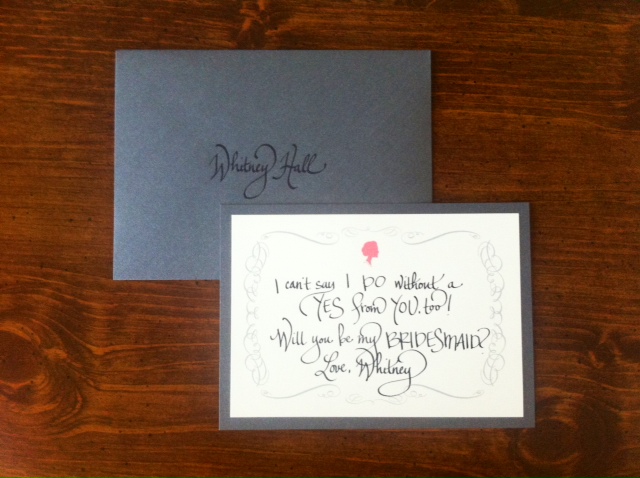 Whitney Hall
I can't say I DO without a
YES from YOU, too!
Will you be my BRIDESMAID?
Love, Whitney